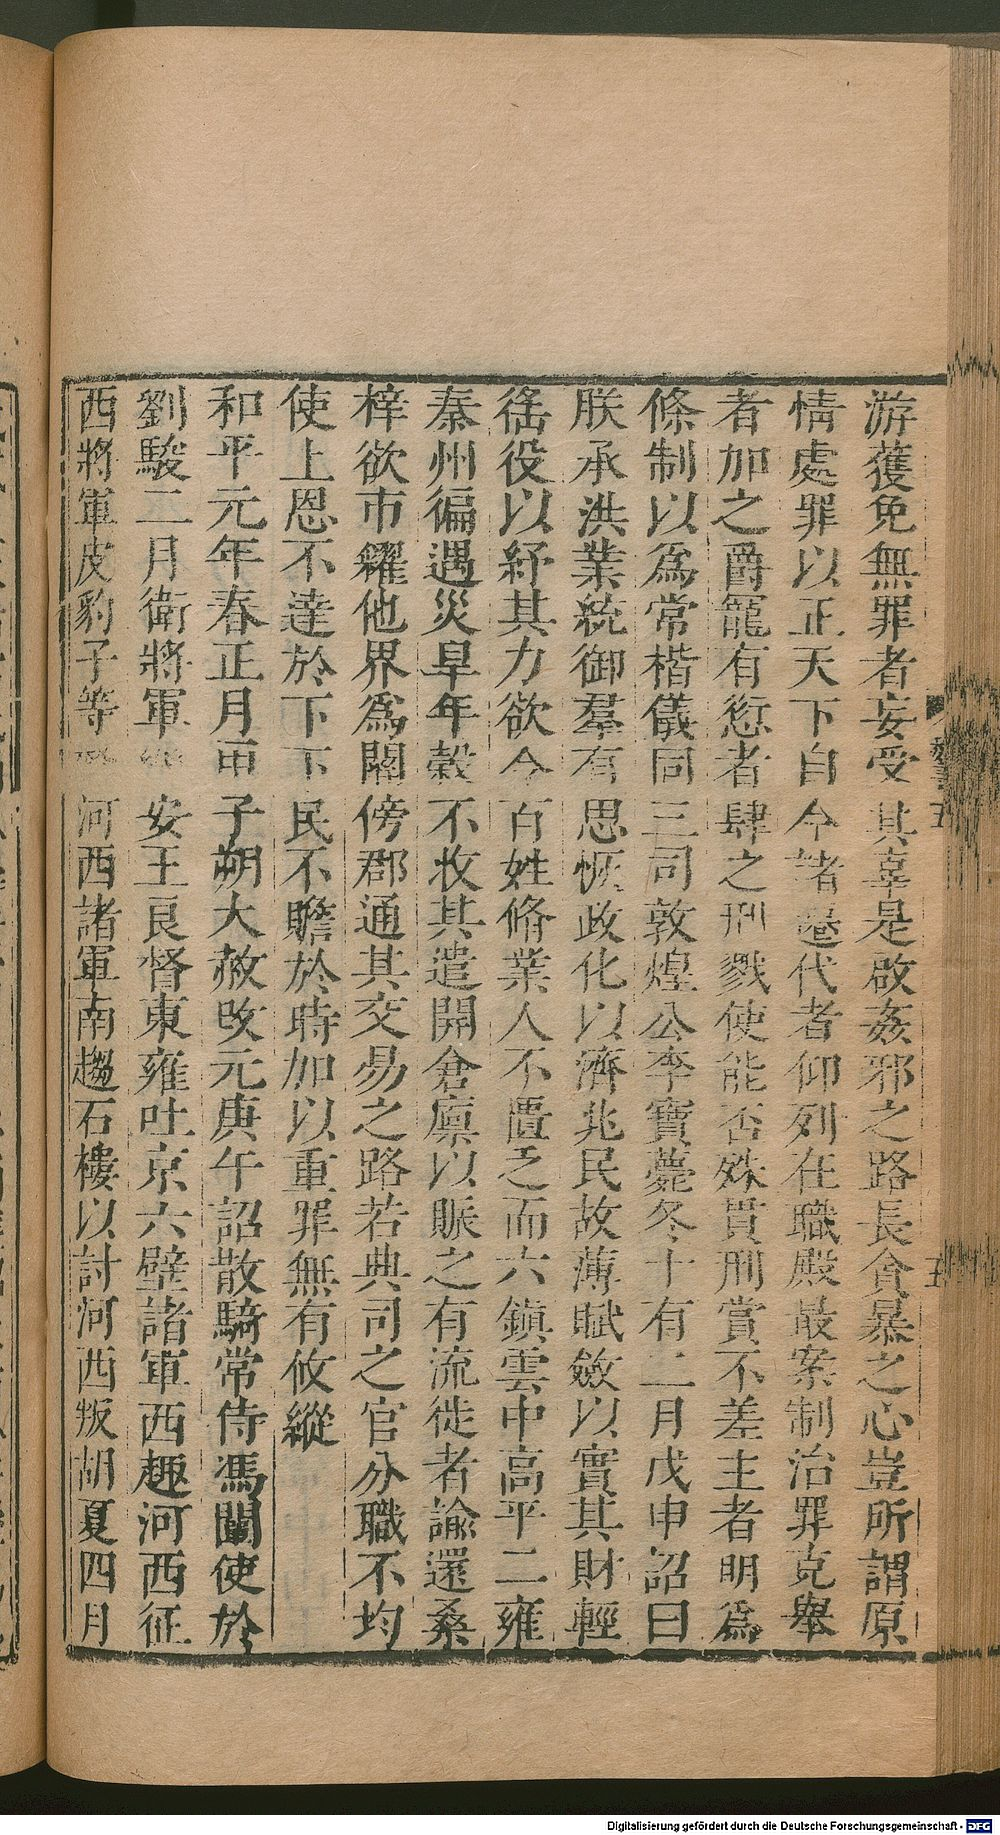 游獲免無罪者妄受其辜是啟姦邪之路長貪暴之心豈所謂原
情處罪以正天下自今諸遷代者仰列在職殿最案制治罪克舉
者加之爵寵有愆者肆之刑戮使能否殊貫刑賞不差主者明爲
條制以爲常楷儀同三司敦煌公李寶薨冬十有二月戊申詔曰
朕承洪業統御羣有思恢政化以濟兆民故薄賦斂以實其財輕
徭役以紓其力欲令百姓脩業人不匱乏而六鎮雲中高平二雍
秦州徧遇災旱年穀不收其遣開倉廩以賑之有流徙者諭還桑
梓欲市糴他界爲關傍郡通其交易之路若典司之官分職不均
使上恩不達於下下民不贍於時加以重罪無有攸縱
和平元年春正月甲子朔大赦改元庚午詔散騎常侍馮闡使於
劉駿二月衛將軍安王良督東雍吐京六壁諸軍西趣河西征
西將軍皮豹子等河西諸軍南趨石樓以討河西叛胡夏四月
五
Digitalisierung gefördert durch die Deutsche Forschungsgemeinschaft - DFG